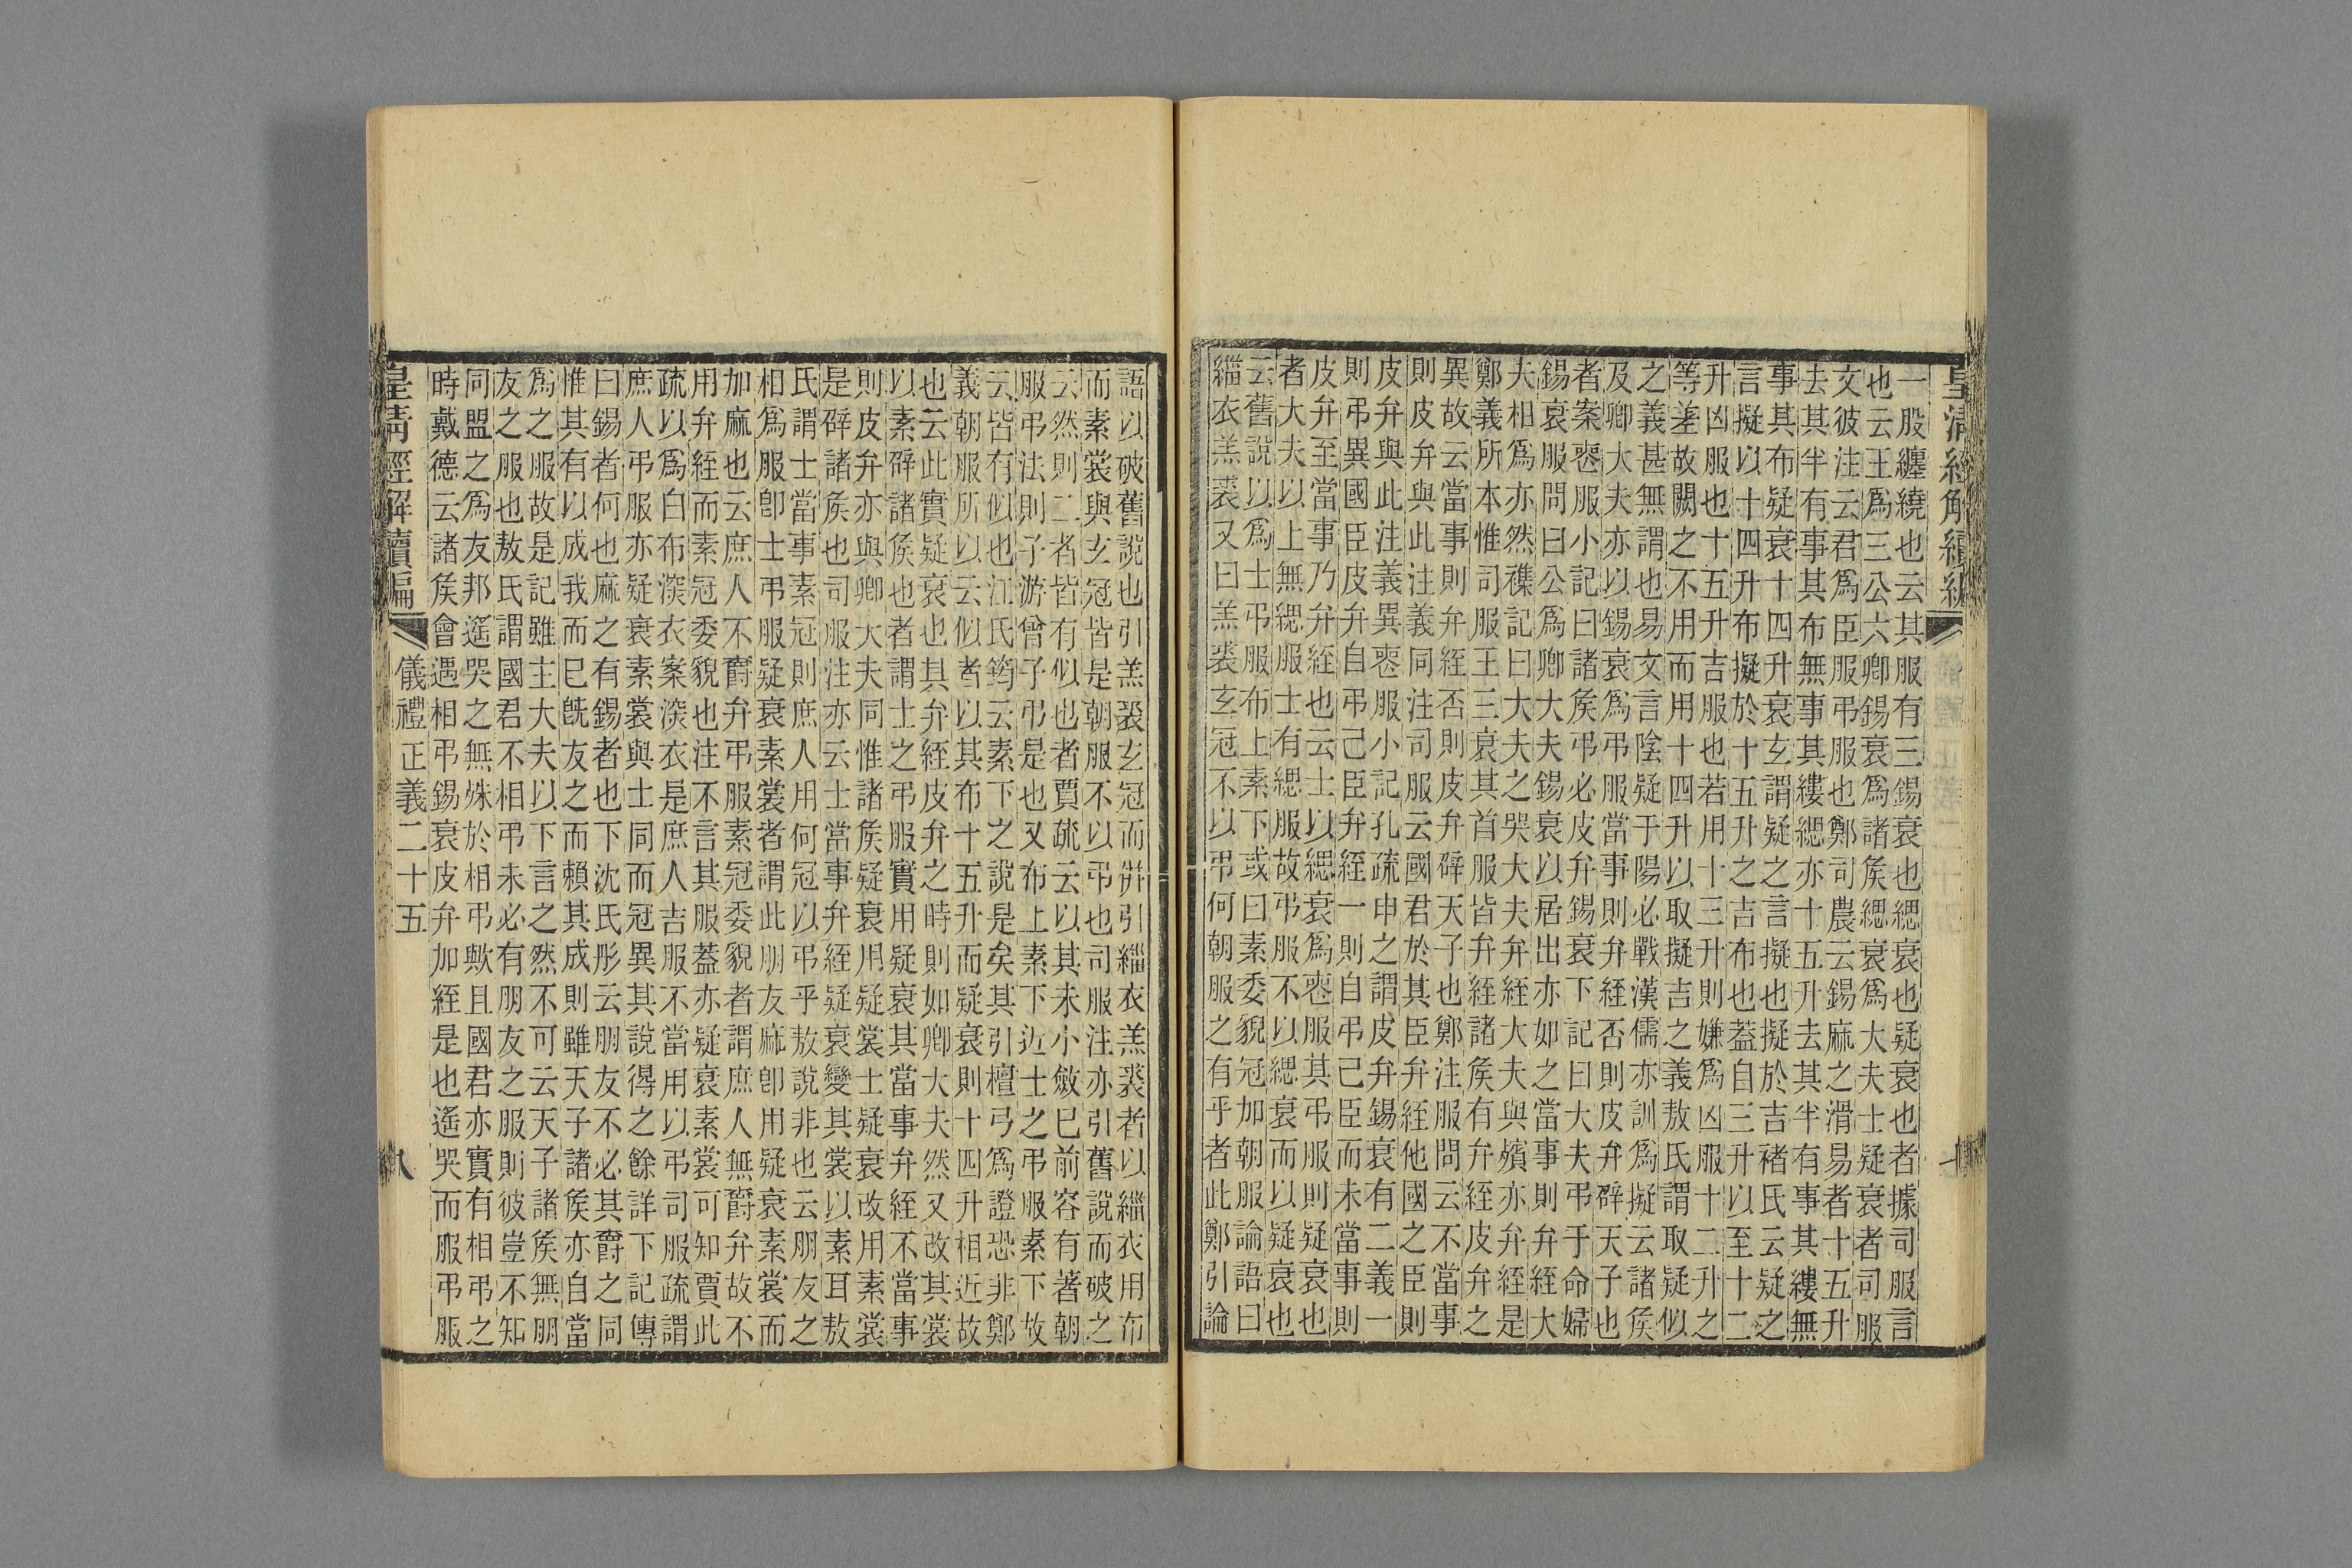 皇清經解續編
一股纏繞也云其服有三錫衰也緦衰也疑衰也者據司服言
也云王爲三公六卿錫衰爲諸侯緦衰爲大夫士疑衰者司服
文彼注云君爲臣服弔服也鄭司農云錫麻之滑易者十五升
去其半有事其布無事其縷緦亦十五升去其半有事其縷無
事其布疑衰十四升衰玄謂疑之言擬也擬於吉褚氏云疑之
言擬以十四升布擬於十五升之吉布也蓋自三升以至十二
升凶服也十五升吉服也若用十三升則嫌爲凶服十二升之
等差故闕之不用而用十四升以取擬吉之義敖氏謂取疑似
之義甚無謂也易文言陰疑于陽必戰漢儒亦訓爲擬云諸侯
及卿大夫亦以錫衰爲弔服當事則弁絰否則皮弁辟天子也
者案喪服小記曰諸侯弔必皮弁錫衰下記曰大夫弔于命婦
錫衰服問曰公爲卿大夫錫衰以居出亦如之當事則弁絰大
夫相爲亦然襍記曰大夫之哭大夫弁絰大夫與殯亦弁絰是
鄭義所本惟司服王三衰其首服皆弁絰諸侯有弁絰皮弁之
異故云當事則弁絰否則皮弁辟天子也鄭注服問云不當事
則皮弁與此注義同注司服云國君於其臣弁絰他國之臣則
皮弁與此注義異喪服小記孔疏申之謂皮弁錫衰有二義一
則弔異國臣皮弁自弔己臣弁絰一則自弔己臣而未當事則
皮弁至當事乃弁絰也云士以緦衰爲喪服其弔服則疑衰也
者大夫以上無緦服士有緦服故弔服不以緦衰而以疑衰也
云舊說以爲士弔服布上素下或曰素委貌冠加朝服論語曰
緇衣羔裘又曰羔裘玄冠不以弔何朝服之有乎者此鄭引論
語以破舊說也引羔裘玄冠而併引緇衣羔裘者以緇衣用布
而素裳與玄冠皆是朝服不以弔也司服注亦引舊說而破之
云然則二者皆有似也者賈疏云以其未小斂已前容有著朝
服弔法則子游曾子弔是也又布上素下近士之弔服素下故
云皆有似也江氏筠云素下之說是矣其引檀弓爲證恐非鄭
義朝服所以云似者以其布十五升而疑衰則十四升相近故
也云此實疑衰也其弁絰皮弁之時則如卿大夫然又改其裳
以素辟諸侯也者謂士之弔服實用疑衰其當事弁絰不當事
則皮弁亦與卿大夫同惟諸侯疑衰用疑裳士疑衰改用素裳
是辟諸侯也司服注亦云士當事弁絰疑衰變其裳以素耳敖
氏謂士當事素冠則庶人用何冠以弔乎敖說非也云朋友之
相爲服卽士弔服疑衰素裳者謂此朋友麻卽用疑衰素裳而
加麻也云庶人不爵弁弔服素冠委貌者謂庶人無爵弁故不
用弁絰而素冠委貌也注不言其服蓋亦疑衰素裳可知賈此
疏以爲白布深衣案深衣是庶人吉服不當用以弔司服疏謂
庶人弔服亦疑衰素裳與士同而冠異其說得之餘詳下記傳
曰錫者何也麻之有錫者也下沈氏彤云朋友不必其爵之同
惟其有以成我而已旣友之而賴其成則雖天子諸侯亦自當
爲之服故是記雖主大夫以下言之然不可云天子諸侯無朋
友之服也敖氏謂國君不相弔未必有朋友之服則彼豈不知
同盟之爲友邦遙哭之無殊於相弔歟且國君亦實有相弔之
時戴德云諸侯會遇相弔錫衰皮弁加絰是也遙哭而服弔服
皇清經解續編 儀禮正義二十五 八